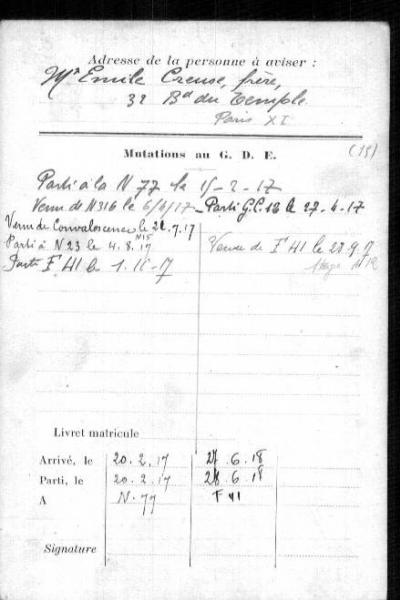 Adresse de la personne à aviser :
Mr Emile Creuse, frère,
32 Bd du Temple
Paris XI
Mutations au G. D. E.
(15)
Parti à la N 77 le 15-2-17
Venu de N316 le 6/4/17 - Parti G.C. 13 le 27-4-17
Venu de Convalescence le 21.7.17
N15
Parti à N 23 le 4.8.17
Venu de F 41 le 28.9.7
Parti F 41 le 1.10-7
Livret matricule
Arrivé, le 20.2.17 27.6.18
Parti, le 20.2.17 28.6.18
A N.77 F 41
Signature